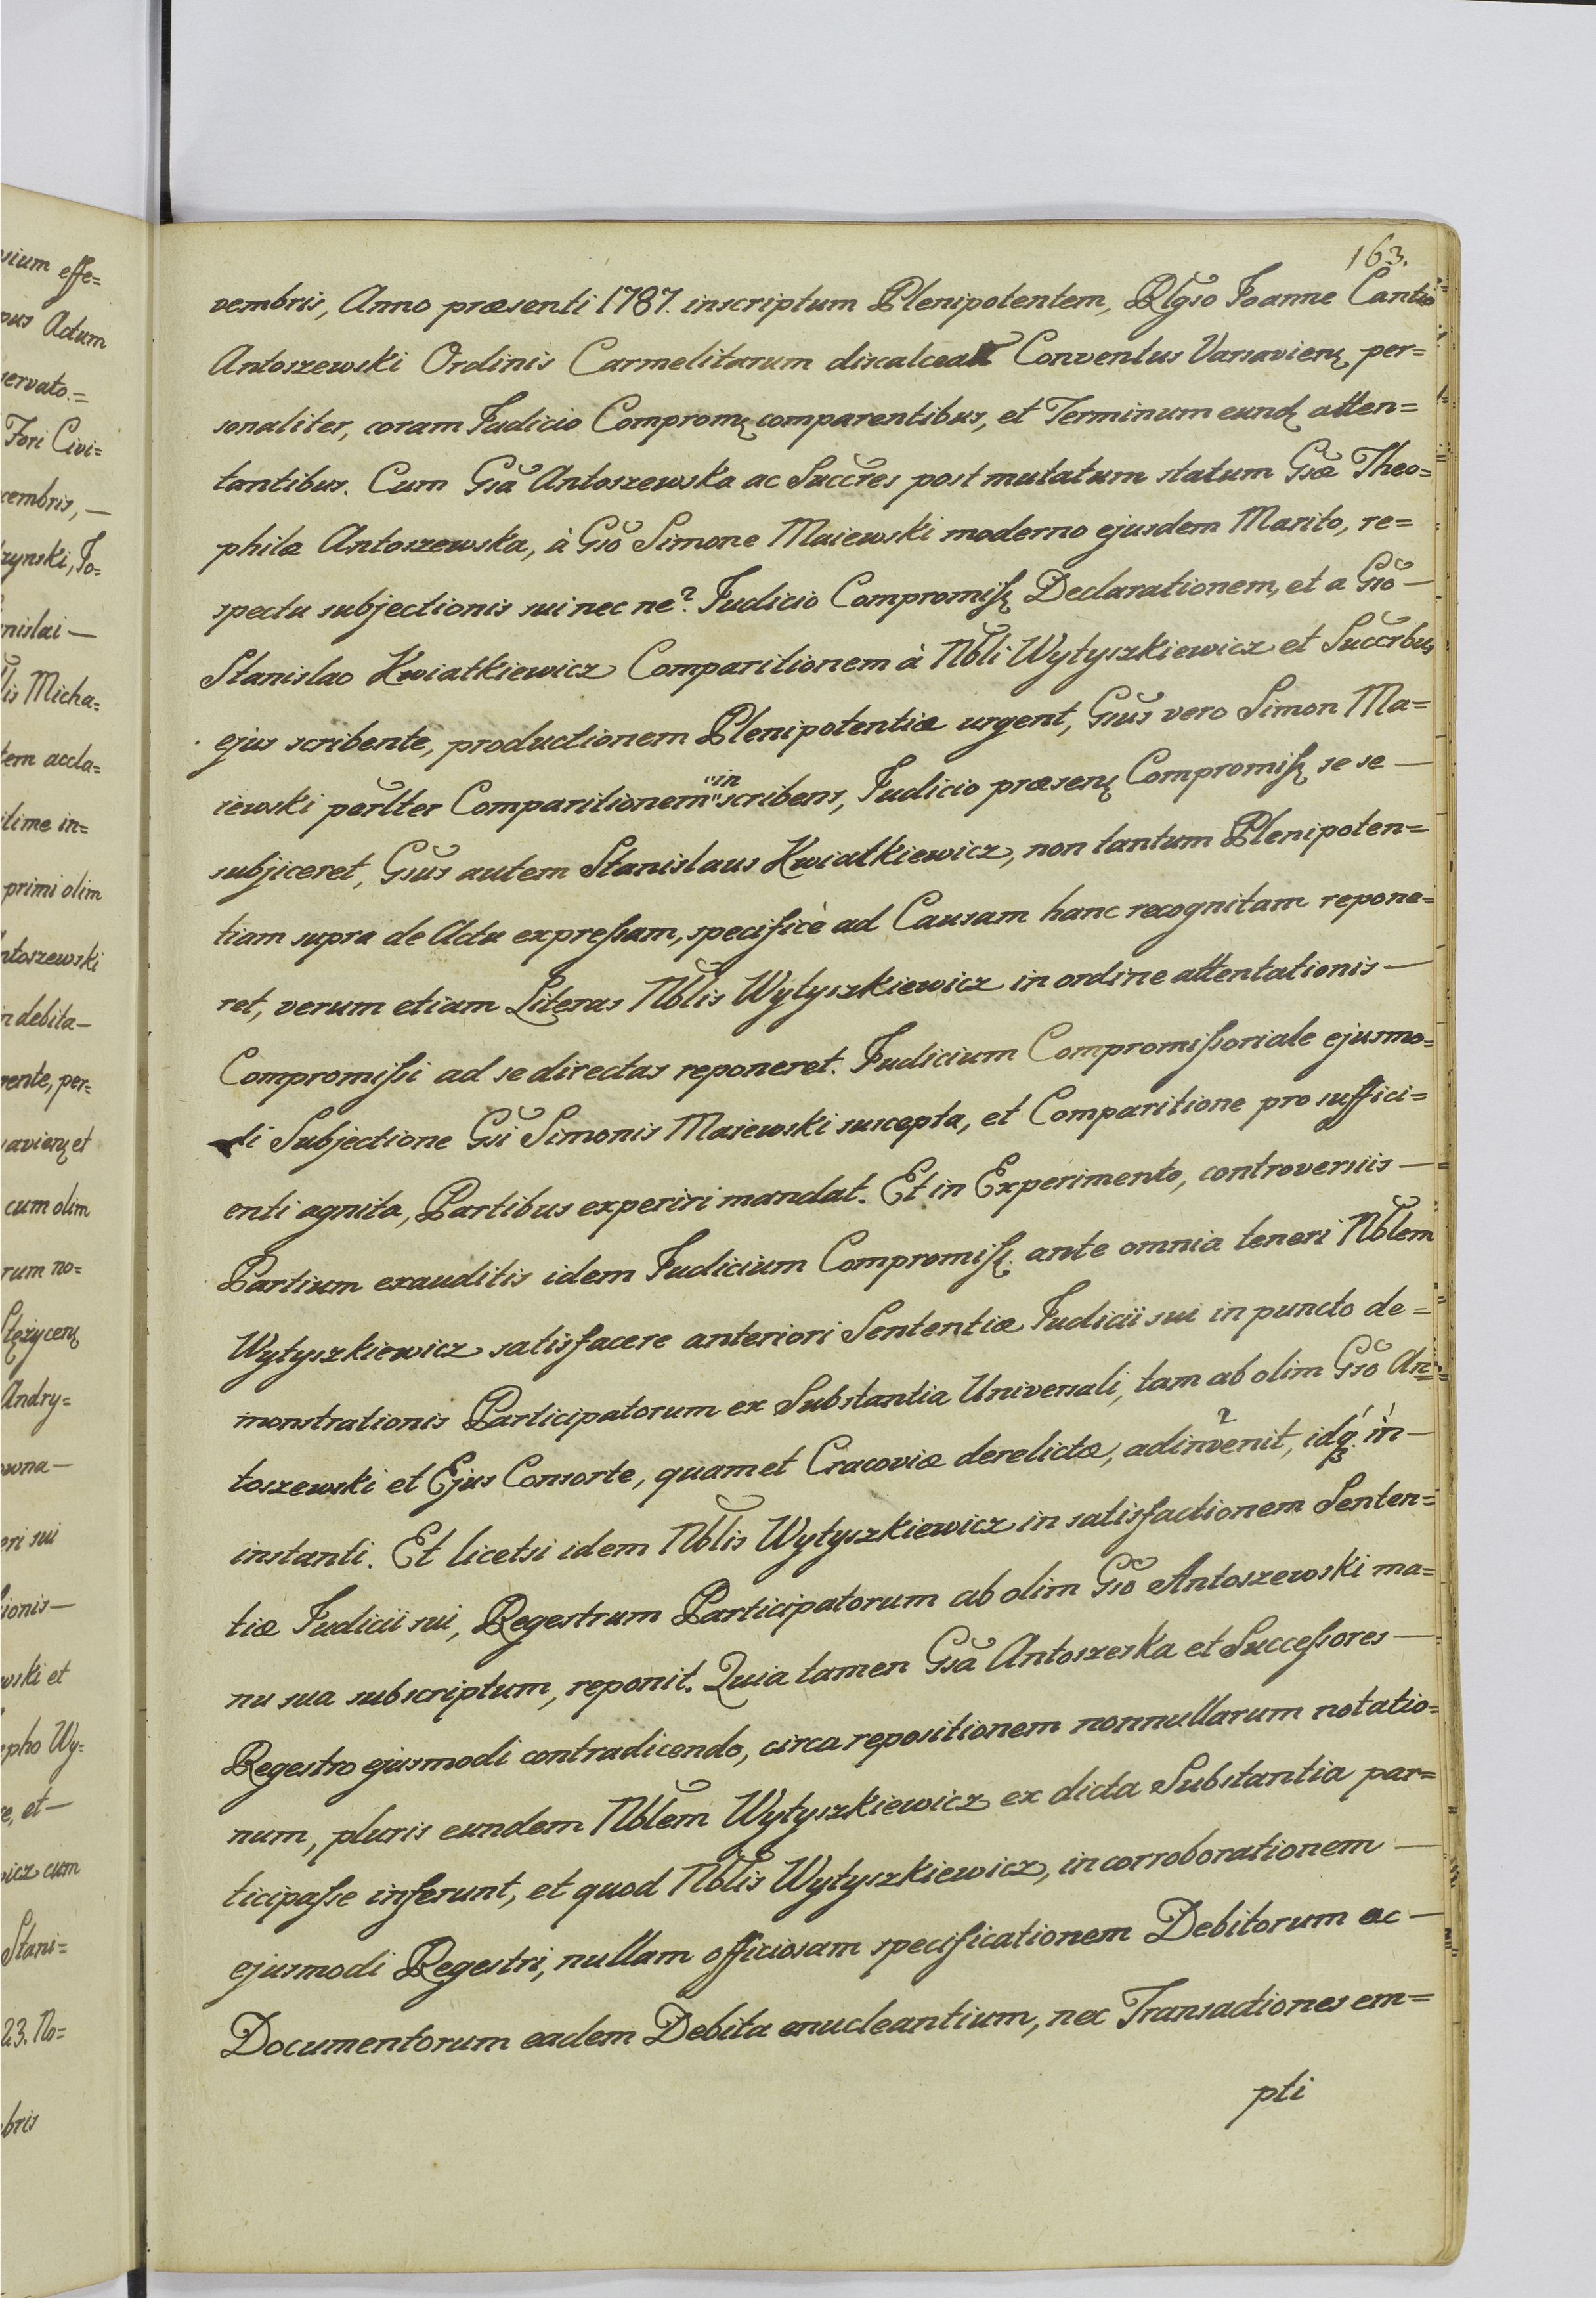 163.
vembris, Anno præsenti 1787. inscriptum Plenipotentem, Rlgso Joanne Cantio
Antoszewski Ordinis Carmelitarum discalceat Conventus Varsavienʒ per=
sonaliter, coram Judicio Compromʒ comparentibus, et Terminum eundʒ atten=
tantibus. Cum Gsa Antoszewska ac Succres post mutatum statum Gsæ Theo=
philæ Antoszewska, à Gso Simone Maiewski moderno ejusdem Marito, re=
spectu subjectionis sui nec ne? Judicio Compromissʒ Declarationem, et a Gso —
Stanislao Kwiatkiewicz Comparitionem à Nbli Wytyszkiewicz et Succrbus
ejus scribente, productionem Plenipotentiæ urgent, Gsus vero Simon Ma=
iewski perlter Comparitionem "in" scribens, Judicio præsenʒ Compromissʒ se se —
subjiceret, Gsus autem Stanislaus Kwiatkiewicz, non tantum Plenipoten=
tiam supra de Actu expressam, specificè ad Causam hanc recognitam repone=
ret, verum etiam Literas Nblis Wytyszkiewicz in ordine attentationis —
Compromissi ad se directas reponeret. Judicium Compromissoriale ejusmo=
di Subjectione Gsi Simonis Maiewski suscepta, et Comparitione pro suffici=
enti agnita, Partibus experiri mandat. Et in Experimento, controversiis —
Partium exauditis idem Judicium Compromissʒ ante omnia teneri Nblem
Wytyszkiewicz satisfacere anteriori Sententiæ Judicii sui in puncto de=
monstrationis Participatorum ex Substantia Universali, tam ab olim Gso An=
toszewski et Ejus Consorte, quam et Cracoviæ derelictæ, adinvenit, idqʒ in —
instanti. Et licetsi idem Nblis Wytyszkiewicz in satisfactionem Senten=
tiæ Judicii sui, Regestrum Participatorum ab olim Gso Antoszewski ma=
nu sua subscriptum, reponit. Quia tamen Gsa Antoszeska et Successores —
Regestro ejusmodi contradicendo, circa repositionem nonnullarum notatio=
num, pluris eundem Nblem Wytyszkiewicz ex dicta Substantia par=
ticipasse inferunt, et quod Nblis Wytyszkiewicz, in corroborationem —
ejusmodi Regestri, nullam officiosam specificationem Debitorum ac —
Documentorum eadem Debita enucleantium, nec Transactiones em=
pti
vium effe=
pus Actum
servato.=
Fori Civi=
cembris, —
zynski, Jo=
nislai —
lis Micha=
tem accla=
itime in=
primi olim
ntoszewski
n debita —
rente, per=
avienʒ et
cum olim
rum no=
Stężycenʒ
Andry=
owna —
eri sui
sionis —
wski et
epho Wy=
re, et —
wicz cum
Stani=
23. No=
bris